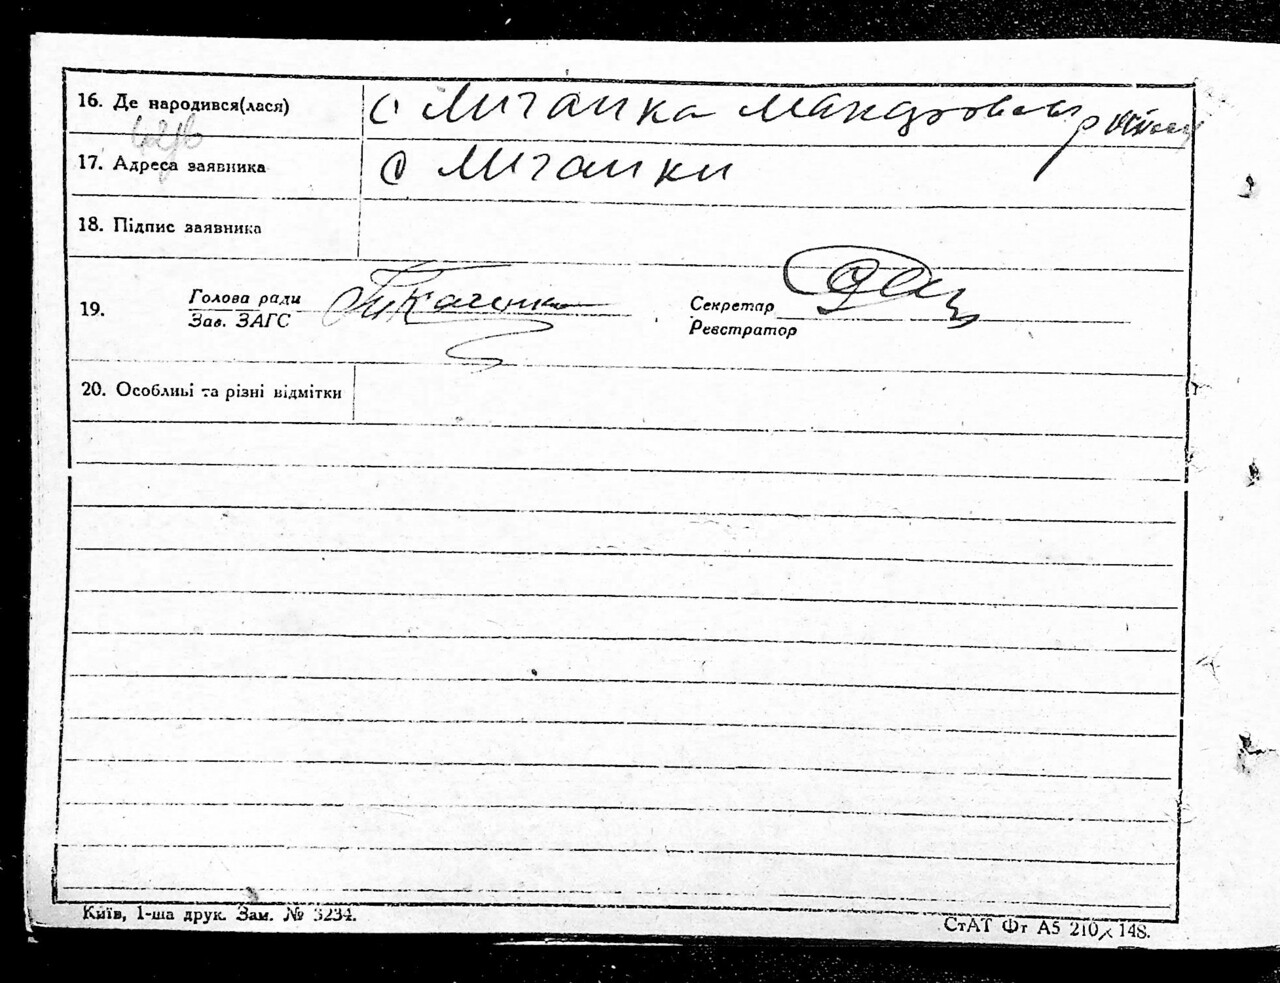 16. Де народився(лася) с Лигаика
17. Адреса заявника с Лигаики
18. Підпис заявника
19. Голова ради Ткаченко Секретар
Зав. ЗАГС Реєстратор
20. Особливі та різні відмітки
Київ, 1-ша друк. Зам. № 3234.
СтАТ Фт А5 210×148.